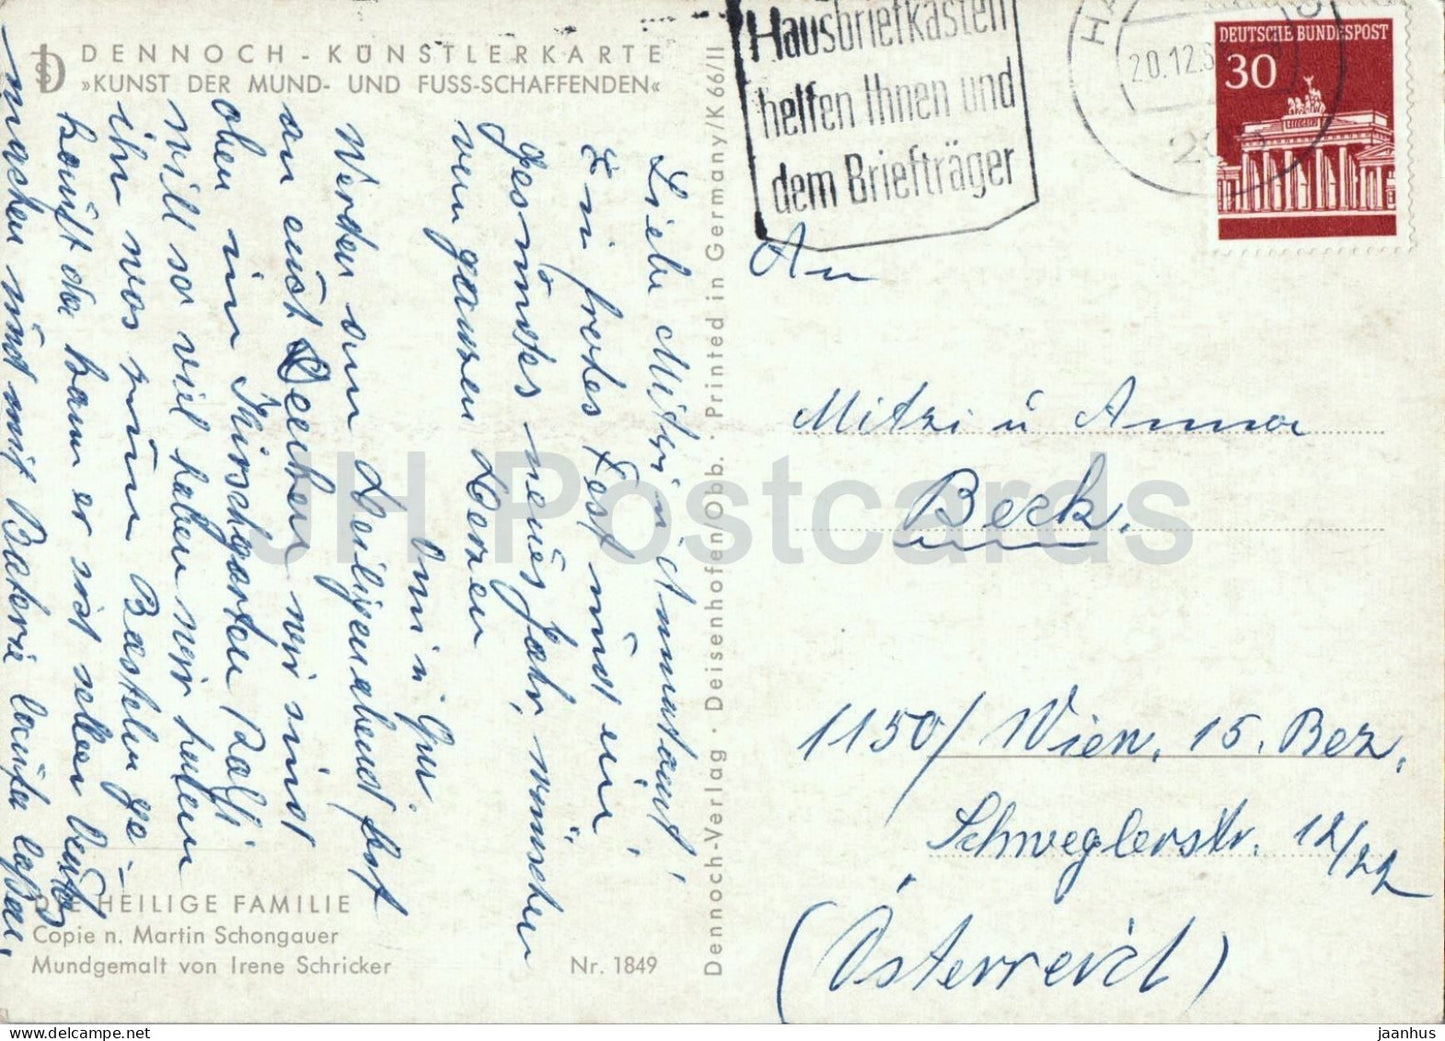 DENNOCH - KÜNSTLERKARTE
»KUNST DER MUND- UND FUSS-SCHAFFENDEN«
Liebe Mitzi u Annatant,
Ein frohes Fest und ein
gesundes neues Jahr, wünschen
von ganzen Herzen
Omi u
Werden am Heiligenabend fest
an euch Denken wir sind
oben im Kirschgarten Ralfi
will so viel haben wir holen
ihn was zum Basteln ge-
kauft da kann er mit selber
machen und mit Baterie laufen laßen.
DIE HEILIGE FAMILIE
Copie n. Martin Schongauer
Mundgemalt von Irene Schricker
Nr. 1849
Dennoch-Verlag · Deisenhofen/Obb. · Printed in Germany/K 66/II
Hausbriefkästen
helfen Ihnen und
dem Briefträger
20.12.6
DEUTSCHE BUNDESPOST
30
An
Mitzi u Anna
Beck.
1150/ Wien, 15. Bez,
Schweglerstr. 12/22
(Österreich)
JH Postcards
hipstamp.com/store/jaanhus
jaanhus